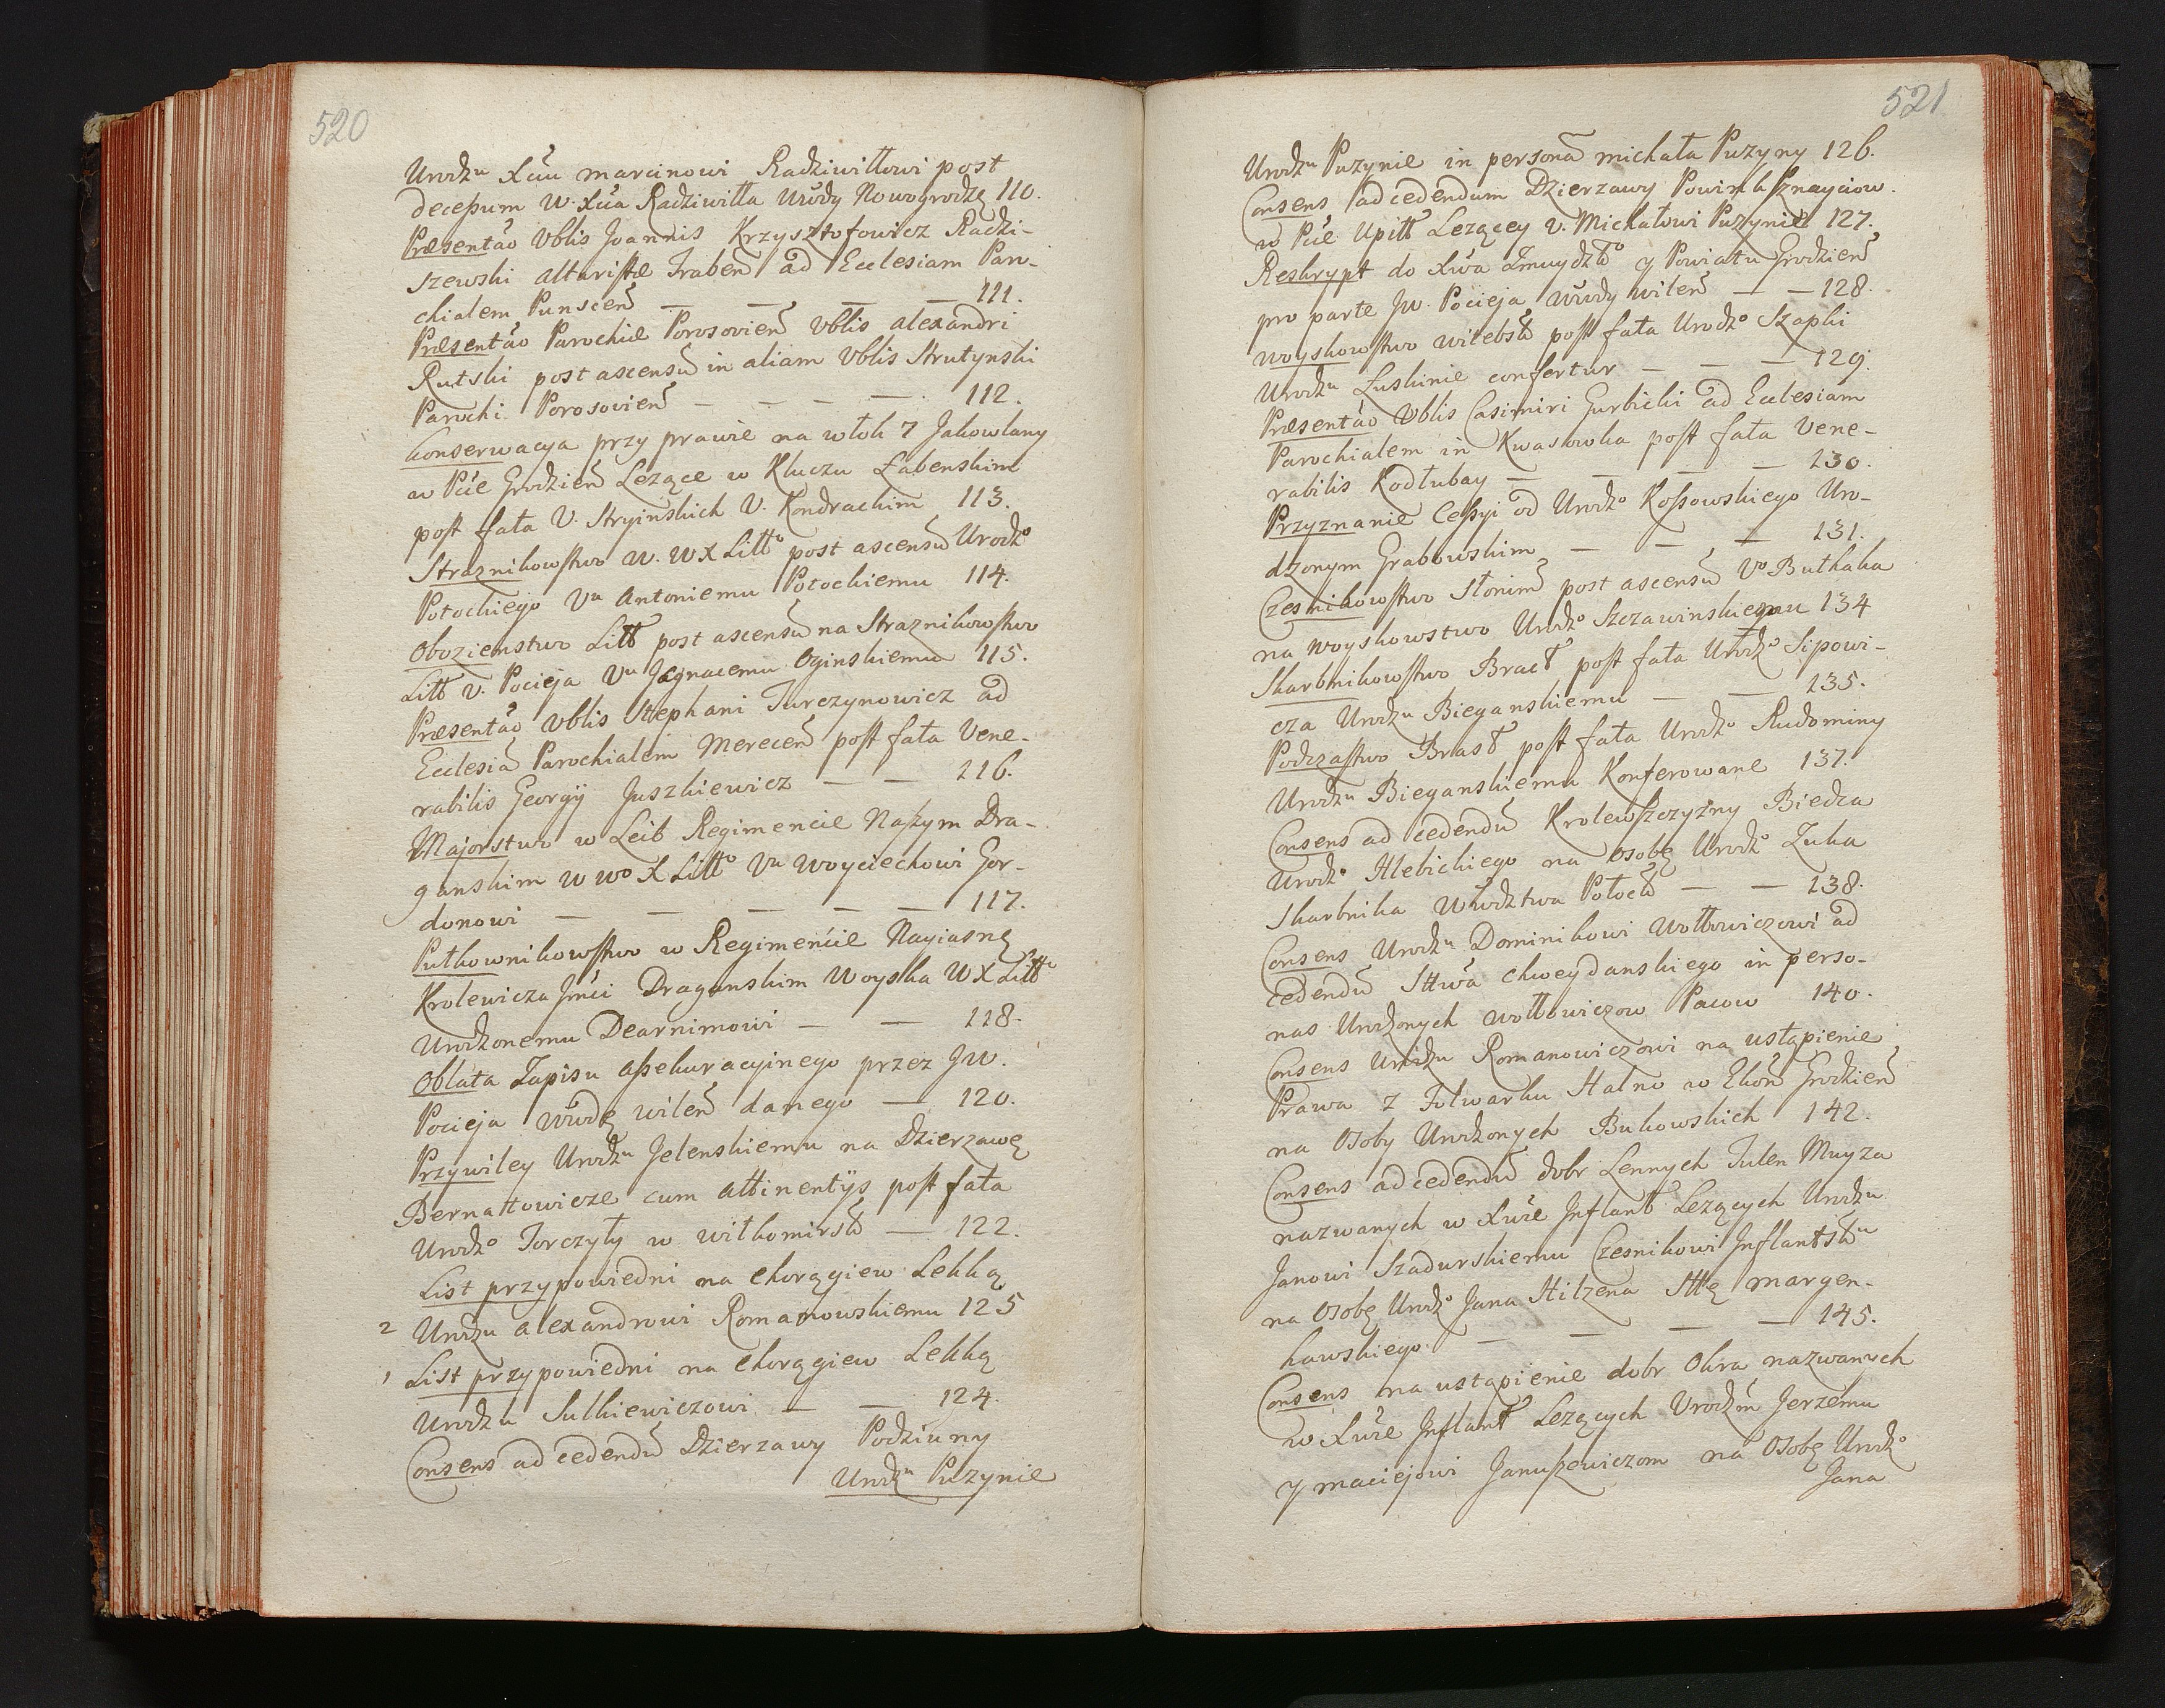 520
Urodzu Xciu marcinowi Radziwiłłowi post
decessum W. Xcia Radziwiłła Wwdy Nowogrodzg 110.
Præsentao Vblis Joannis Krzysztofowicz Radzi-
szewski altaristæ Traben ad Ecclesiam Paro-
chialem Punscen — — — — 111.
Præsentao Parochiæ Porosovien Vblis alexandri
Rutski post ascensu in aliam Vblis Strutynski
Parochi Porosovien — — — — 112.
Konserwacya przy prawie na włok 7 Jakowlany
w Pcie Grodzien Lezące w Kluczu Łabenskim
post fata U. Stryinskich U. Kondrackim 113.
Straznikowstwo W. W X Litto post ascensu Urodzo
Potockiego Uu Antoniemu Potockiemu 114.
Obozienstwo Litt post ascensu na Straznikowstwo
Litt U. Pocieja Uu Jgnacemu Oginskiemu 115.
Præsentao Vblis Stephani Turczynowicz ad
Ecclesia Parochialem Merecen post fata Vene-
rabilis Georgij Juszkiewicz — — 116.
Majorstwo w Leib Regimencie Naszym Dra-
ganskim W Wo X Litto Uu Woyciechowi Gor-
donowi — — — — — 117.
Pułkownikowstwo w Regimencie Nayiasnę
Krolewicza Jmci Draganskim Woyska W X Litto
Urodzonemu Dearnimowi — — 118.
Oblata Zapisu assekuracyinego przez JW.
Pocieja Wwdę wilen danego — 120.
Przywiley Urodzu Jelenskiemu na Dzierzawę
Bernattowicze cum attinentijs post fata
Urodzo Torczyły w wiłkomirst — 122.
List przypowiedni na Chorągiew Lekką
2 Urodzu alexandrowi Romanowskiemu 125
1 List przypowiedni na Chorągiew Lekką
Urodzu Sulkiewiczowi — — 124.
Consens ad cedendu Dzierzawy Podziuny
Urodzu Puzynie
521
Urodzu Puzynie in persona michała Puzyny 126.
Consens ad cedendum Dzierzawy Sznayciow.
w Pcie Upitt Lezącey U. Michałowi Puzynie 127.
Reskrypt do Xwa Zmuydzko y Powiatu Grodzien
pro parte JW. Pocieja Wwdy wilen — — 128.
Woyskowstwo witebst post fata Urodzo Szapki
Urodzu Łuskinie confertur — — — 129.
Præsentao Vblis Casimiri Gurbicki ad Ecclesiam
Parochialem in Kwasowka post fata Vene-
rabilis Kodłubay — — — — 130.
Przyznanie Cessyi od Urodzo Kossowskiego Uro-
dzonym Grabowskim — — — 131.
Czesnikowstwo Słonim post ascensu Uo Bułhaka
na Woyskowstwo Urodzo Szczawinskiemu 134
Skarbnikowstwo Bracł post fata Urodzo Sipowi-
cza Urodzu Bieganskiemu — — 135.
Podczastwo Brasł post fata Urodzo Rudominy
Urodzu Bieganskiemu Konferowane 137.
Consens ad cedendu Krolewszczyzny Biedza
Urodzo Hlebickiego na osobę Urodzo Zuka
Skarbnika Wwdztwa Połock — — 138.
Consens Urodzu Dominikowi Wołłowiczowi ad
cedendu Sttwa Chweydanskiego in perso-
nas Urodzonych Wołłowiczow Pacow 140.
Consens Urodzu Romanowiczowi na ustąpienie
Prawa z Folwarku Stalno w Ekon Grodzien
na Osoby Urodzonych Bukowskich 142.
Consens ad cedendu dobr Lennych Tulen Muyza
nazwanych w Xwie Jnflant Lezących Urodzu
Janowi Szadurskiemu Czesnikowi Jnflantsku
na Osobę Urodzo Jana Hilzena Sttę margen-
hawskiego — — — — 145.
Consens na ustąpienie dobr Okra nazwanych
w Xwie Jnflant Lezących Urodzm Jerzemu
y maciejowi Januszewiczom na Osobę Urodzo
Jana